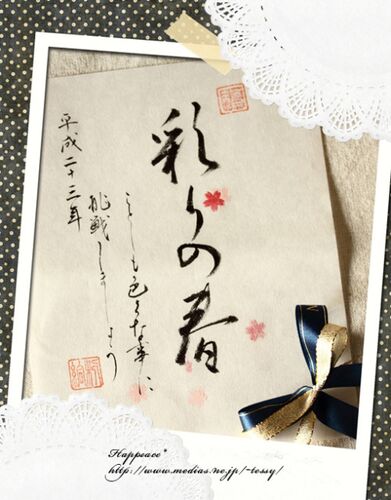 彩りの春
ことしも色々な事に
挑戦しましょう
平成二十三年
Happeace*
http://www.medias.ne.jp/~tessy/